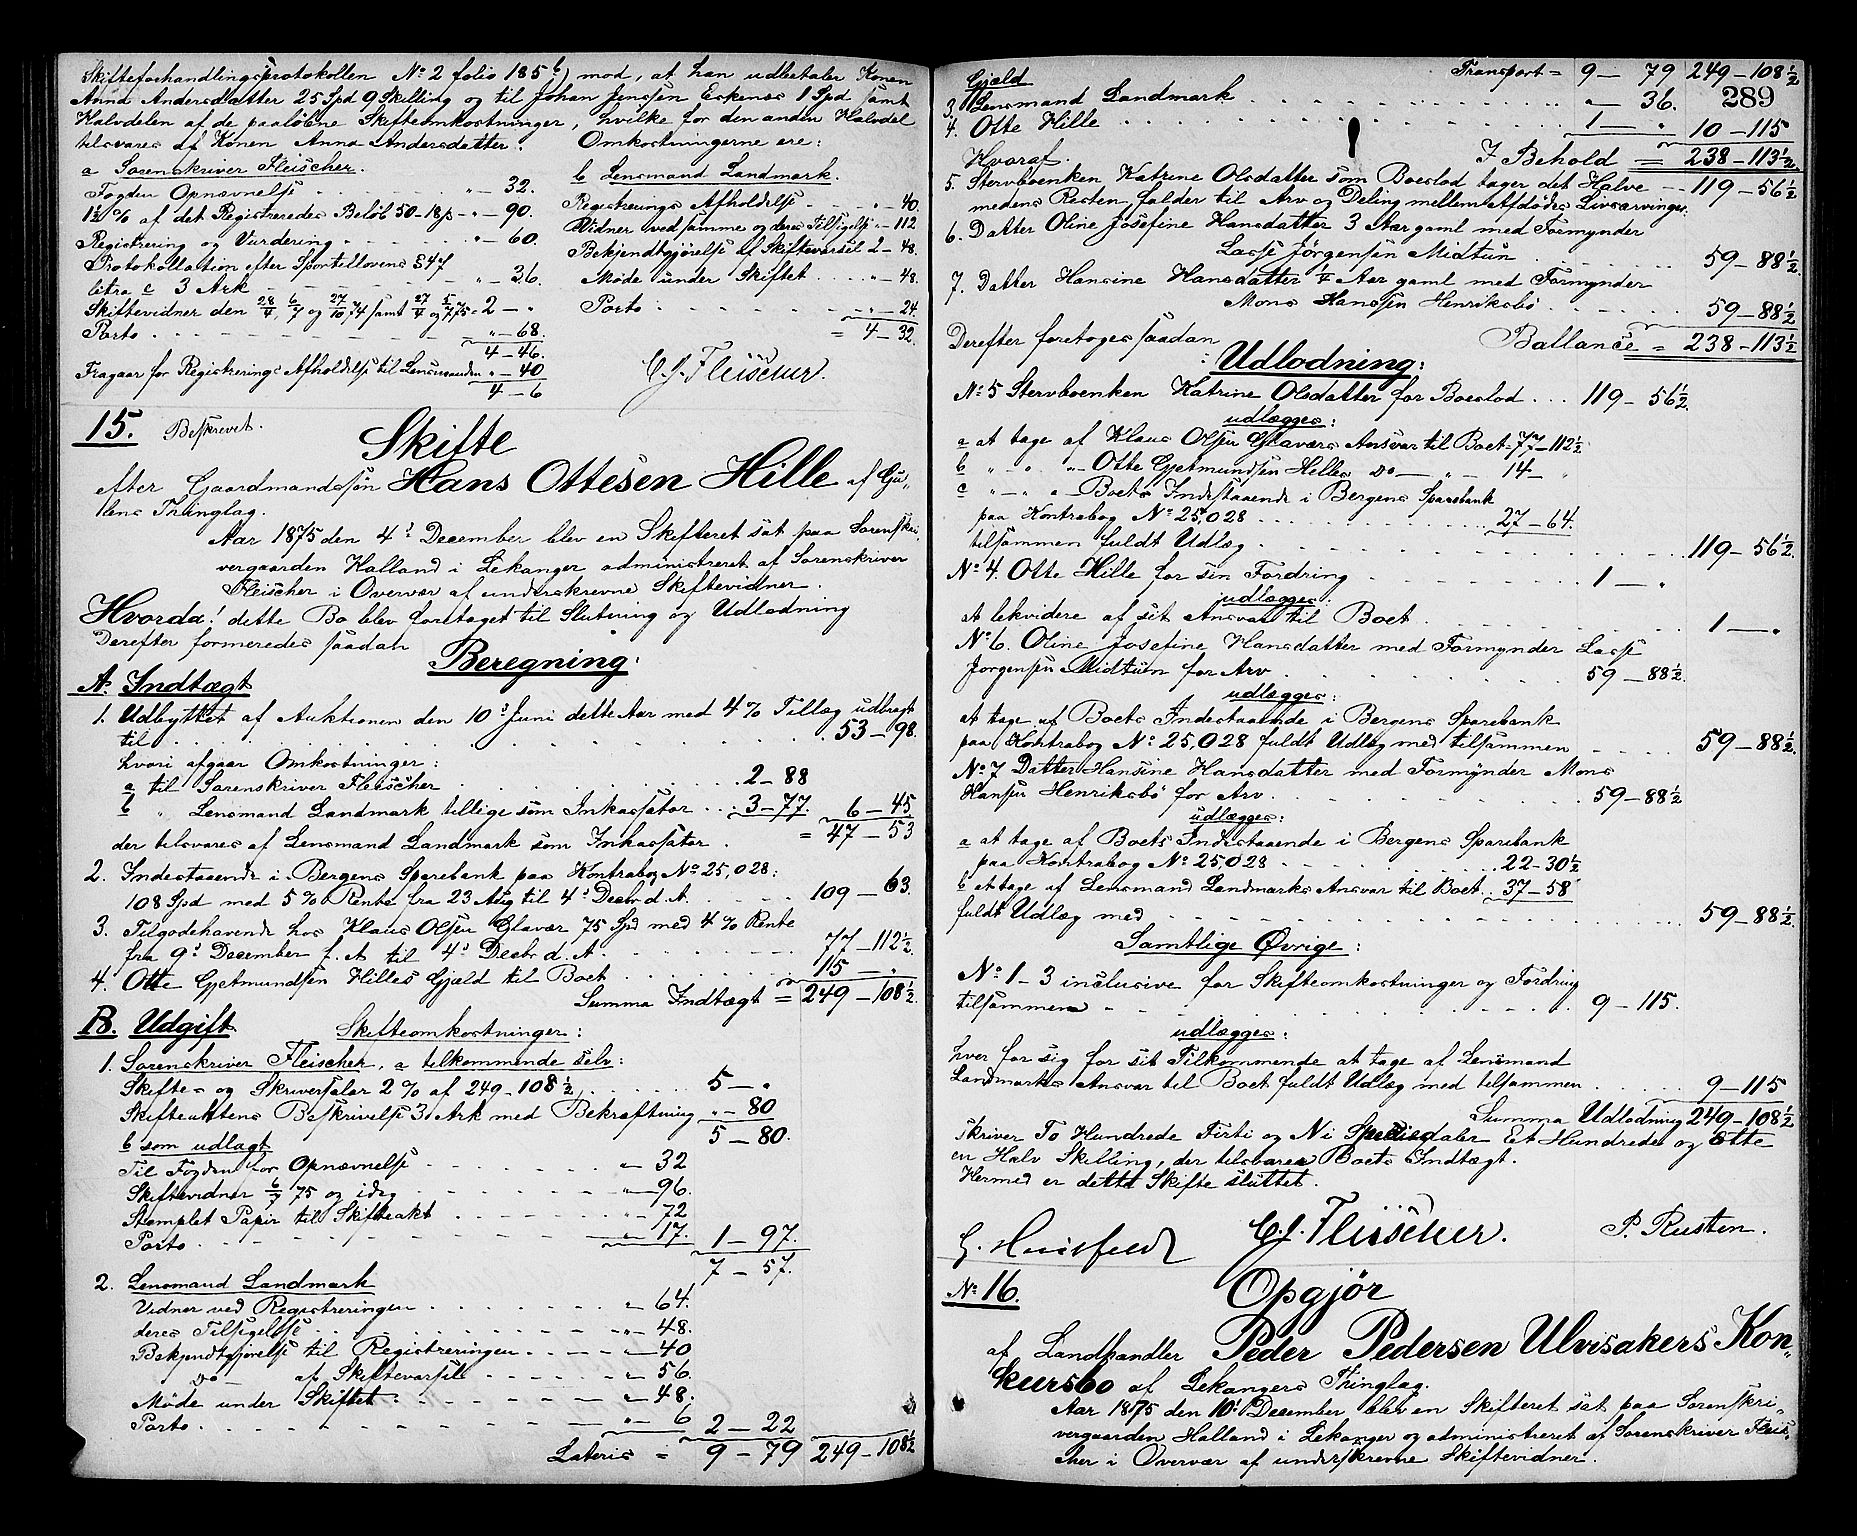 Skifteforhandlingsprotokollen No 2 folio 185 b) mod, at han udbetaler Konen
Anna Andersdatter 25 Spd 9 Skilling og til Johan Jenssen Eskenæs 1 Spd samt
Halvdelen af de paaløbne Skifteomkostninger, hvilke for den anden Halvdel
tilsvares af Konen Anna Andersdatter. Omkostningerne ere:
a Sorenskriver Fleischer.
Fogden Opnævnelse " - 32.
1½% af det Registreredes Beløb 50-18 β - " - 90.
Registrering og Vurdering " - 60.
Protokollation efter Sportellovens § 47
litra c 3 Ark " - 36.
Skiftevidner den 28/4, 6/7 og 27/10 74 samt 27/4 og 5/7 75 = 2 - "
Porto " - 68.
4 - 46.
Fragaar for Registrerings Afholdelse til Lensmanden " - 40
4 - 6
b Lensmand Landmark.
Registrerings Afholdelse " - 40.
Vidner ved samme og deres Tilsigelse " - 112
Bekjendtgjørelse af Skiftevarsel 2 - 48.
Møde under Skiftet " - 48.
Porto " - 24
= 4 - 32.
C. J. Fleischer.
15. Beskrevet.
Skifte
efter Gaardmandssøn Hans Ottesen Hille af Gu-
lens Thinglag.
Aar 1875 den 4de December blev en Skifteret sat paa Sorenskri-
vergaarden Halland i Lekanger administreret af Sorenskriver
Fleischer i Overvær af underskrevne Skiftevidner.
Hvorda! dette Bo blev foretaget til Slutning og Udlodning
Derefter formeredes saadan
Beregning:
A. Indtægt
1. Udbyttet af Auktionen den 10de Juni dette Aar med 4% Tillæg udbragt
til 53 - 98.
hvori afgaar Omkostninger:
a til Sorenskriver Fleischer 2 - 88
b " Lensmand Landmark tillige som Inkassator 3 - 77. 6 - 45
der tilsvares af Lensmand Landmark som Inkassator. = 47 - 53
2. Indestaaende i Bergens Sparebank paa Kontrabog No 25,028:
108 Spd med 5% Rente fra 23 Aug til 4de Decbr d. A. 109 - 63.
3. Tilgodehavende hos Klaus Olsen Glavær 75 Spd med 4% Rente
fra 9de December f. A til 4de Decbr d. A. 77 - 112½
4. Otte Gjetmundsen Hilles Gjæld til Boet 115 - "
Summa Indtægt = 249 - 108½
B. Udgift Skifteomkostninger:
1. Sorenskriver Fleischer, a tilkommende selv:
Skifte- og Skriversalær 2% af 249-108½ 5 - "
Skifteaktens Beskrivelse 3 Ark med Bekræftning " - 80
b som udlagt 5 - 80.
Til Fogden for Opnævnelse " - 32
Skiftevidner 6/7 75 og idag " - 96.
Stemplet Papir til Skifteakt " - 72
Porto " - 17. 1 - 97.
7 - 57.
2. Lensmand Landmark
Vidner ved Registreringen " - 64.
deres Tilsigelse " - 48.
Bekjendtgjørelse til Registreringen " - 40
Do - af Skiftevarsel " - 56.
Møde under Skiftet " - 48.
Porto " - 6 2 - 22
Lateris = 9 - 79 249 - 108½
Transport = 9 - 79 249 - 108½
Gjæld
289
3. Lensmand Landmark " - 36.
4. Otte Hille 1 - " 10 - 115
Hvoraf. I Behold = 238 - 113½
5. Stervboenken Katrine Olsdatter som Boeslod tager det Halve - 119 - 56½
medens Resten falder til Arv og Deling mellem Afdødes Livsarvinger.
6. Datter Oline Josefine Hansdatter 3 Aar gaml med Formynder
Lasse Jørgensen Midtun 59 - 88½
7. Datter Hansine Hansdatter ¼ Aar gaml med Formynder
Mons Hanssen Henriksbø 59 - 88½
Derefter foretoges saadan Ballance = 238 - 113½
Udlodning:
No 5 Stervboenken Katrine Olsdatter for Boeslod 119 - 56½
udlægges:
a at tage af Klaus Olsen Glaværs Ansvar til Boet = 77 - 112½
b " - " - " - Otte Gjetmundsen Hilles Do - " - 14 - "
c " - " - " - Boets Indestaaende i Bergens Sparebank
paa Kontrabog No 25,028 27 - 64.
tilsammen fuldt Udlæg 119 - 56½.
No 4. Otte Hille for sin Fordring 1 - "
udlægges:
at lekvidere af sit Ansvar til Boet 1 - "
No 6. Oline Josefine Hansdatter med Formynder Lasse
Jørgensen Midtun for Arv 59 - 88½.
udlægges:
at tage af Boets Indestaaende i Bergens Sparebank
paa Kontrabog No 25,028 fuldt Udlæg med tilsammen 59 - 88½.
No 7 Datter Hansine Hansdatter med Formynder Mons
Hansen Henriksbø for Arv 59 - 88½
udlægges:
a at tage af Boets Indestaaende i Bergens Sparebank
paa Kontrabog No 25,028 22 - 30½
b at tage af Lensmand Landmarks Ansvar til Boet 37 - 58
fuldt Udlæg med 59 - 88½
Samtlige Øvrige:
No 1 - 3 inclusive for Skifteomkostninger og Fordring
tilsammen 9 - 115.
udlægges:
hver for sig for sit Tilkommende at tage af Lensmand
Landmarks Ansvar til Boet fuldt Udlæg med tilsammen 9 - 115
Summa Udlodning 249 - 108½
skriver To Hundrede Firti og Ni Speciedaler Et Hundrede og Otte
en Halv Skilling, der tilsvarer Boets Indtægt.
Hermed er dette Skifte sluttet.
C. J. Fleischer. P. Rusten.
No 16.
Opgjør
af Landhandler Peder Pedersen Ulvisakers Kon-
kursbo af Lekangers Thinglag.
Aar 1875 den 10de December blev en Skifteret sat paa Sorenskri-
vergaarden Halland i Lekanger og administreret af Sorenskriver Fleis-
cher i Overvær af underskrevne Skiftevidner.